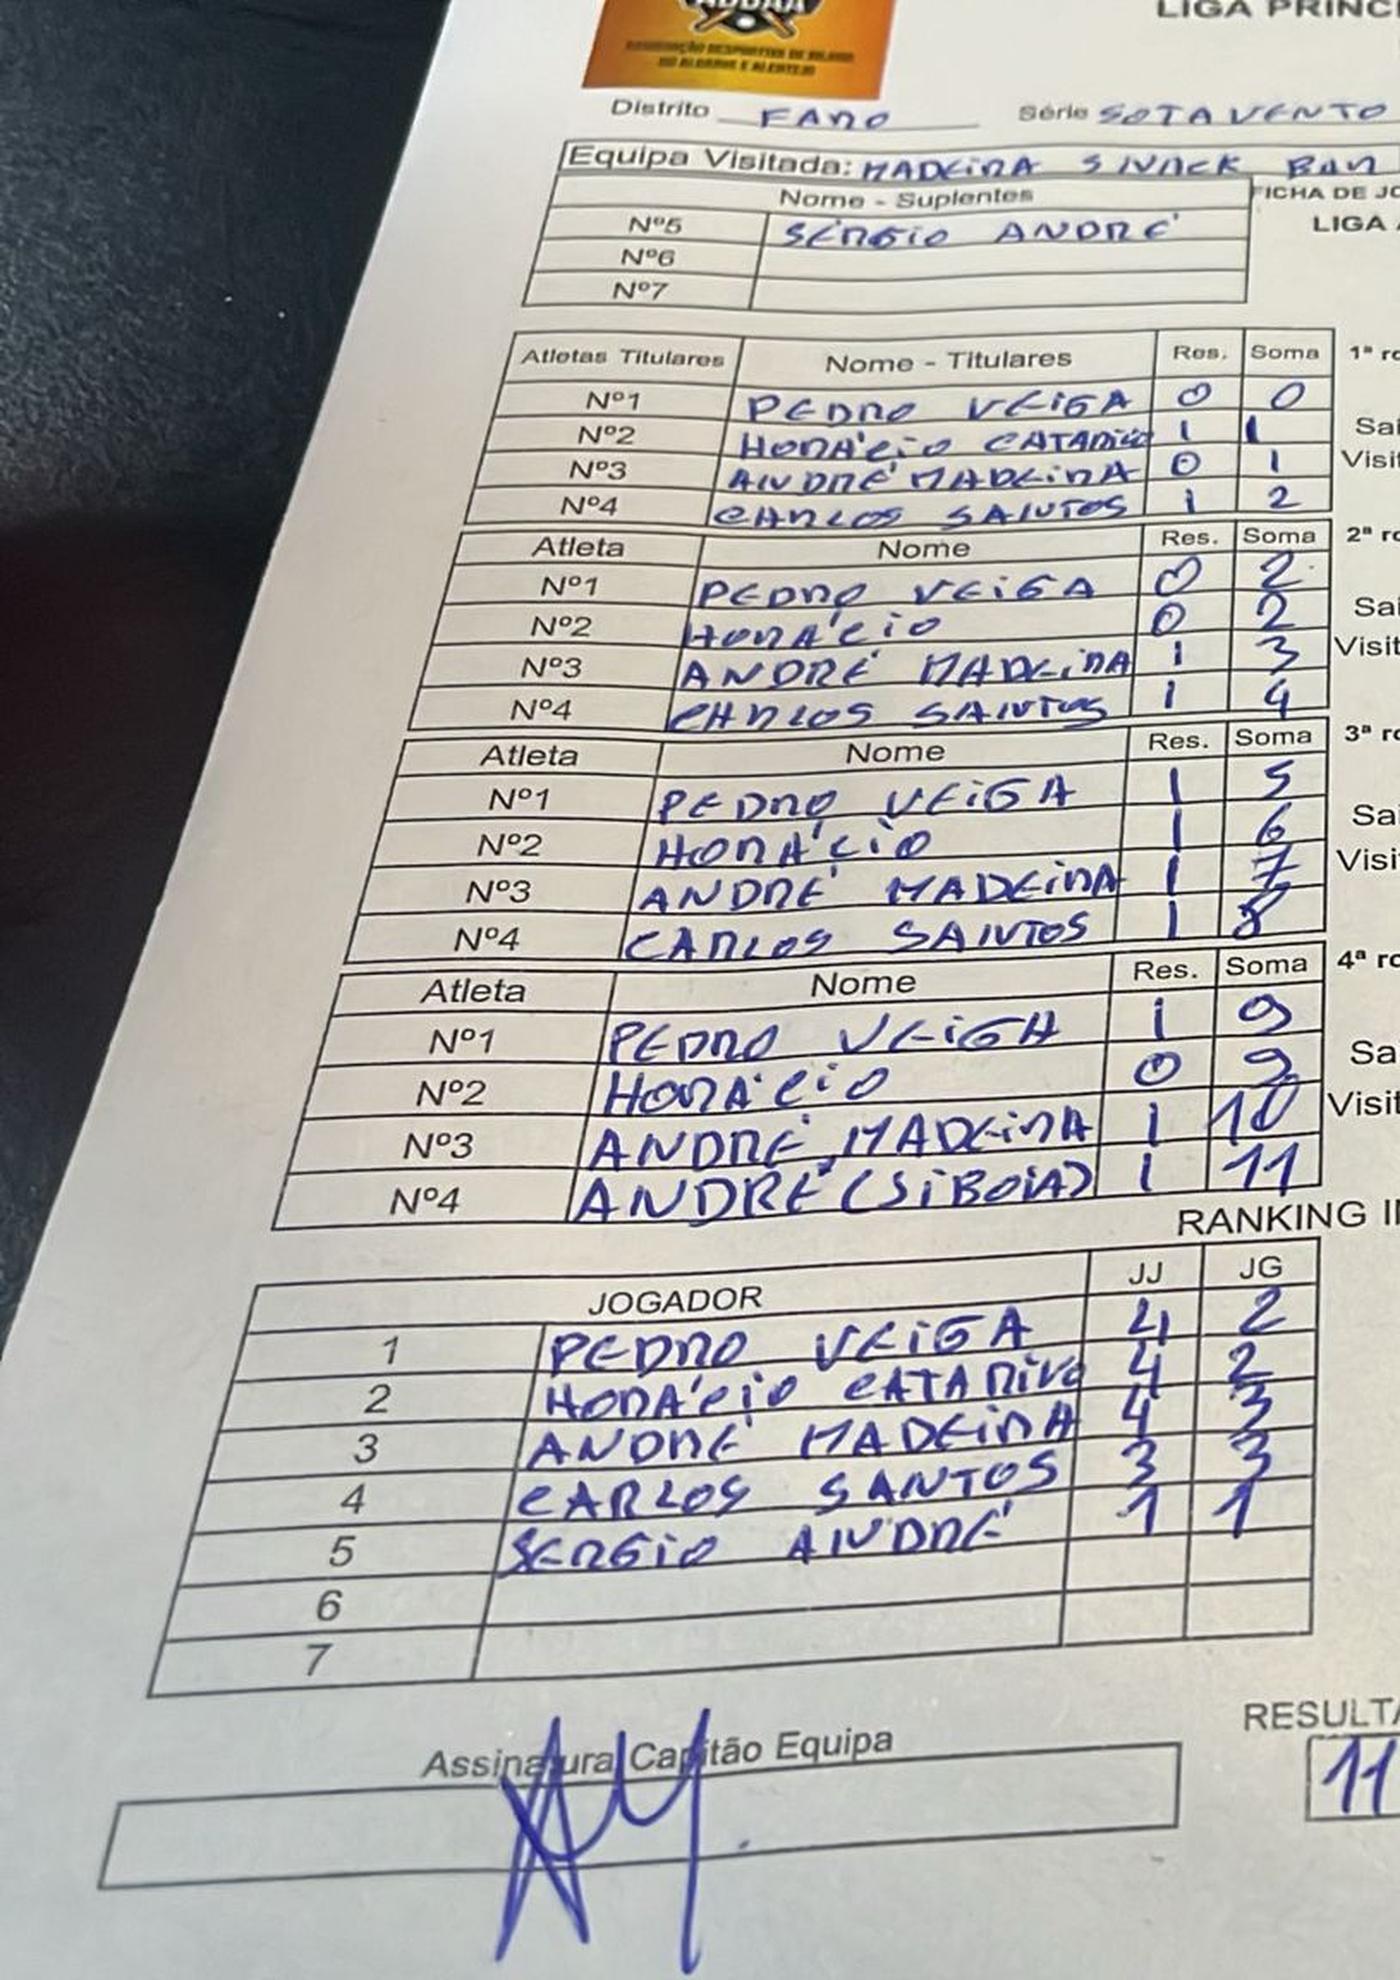 ASSOCIAÇÃO DESPORTIVA DE BILHAR
DO ALGARVE E ALENTEJO
LIGA PRINC
Distrito FARO Série SOTAVENTO
Equipa Visitada: MADEIRA SNACK BAR
Nome - Suplentes FICHA DE JO
Nº5 SÉRGIO ANDRÉ LIGA
Nº6
Nº7
Atletas Titulares Nome - Titulares Res. Soma 1ª ro
Nº1 PEDRO VEIGA 0 0
Nº2 HORÁCIO CATARINO 1 1 Sai
Nº3 ANDRÉ MADEIRA 0 1 Visit
Nº4 CARLOS SANTOS 1 2
Atleta Nome Res. Soma 2ª ro
Nº1 PEDRO VEIGA 0 2
Nº2 HORÁCIO 0 2 Sai
Nº3 ANDRÉ MADEIRA 1 3 Visit
Nº4 CARLOS SANTOS 1 4
Atleta Nome Res. Soma 3ª ro
Nº1 PEDRO VEIGA 1 5
Nº2 HORÁCIO 1 6 Sai
Nº3 ANDRÉ MADEIRA 1 7 Visi
Nº4 CARLOS SANTOS 1 8
Atleta Nome Res. Soma 4ª ro
Nº1 PEDRO VEIGA 1 9
Nº2 HORÁCIO 0 9 Sa
Nº3 ANDRÉ MADEIRA 1 10 Visit
Nº4 ANDRÉ (SIBOIA) 1 11
RANKING I
JOGADOR JJ JG
1 PEDRO VEIGA 4 2
2 HORÁCIO CATARINO 4 2
3 ANDRÉ MADEIRA 4 3
4 CARLOS SANTOS 3 3
5 SERGIO ANDRÉ 1 1
6
7
Assinatura Capitão Equipa RESULTA
11